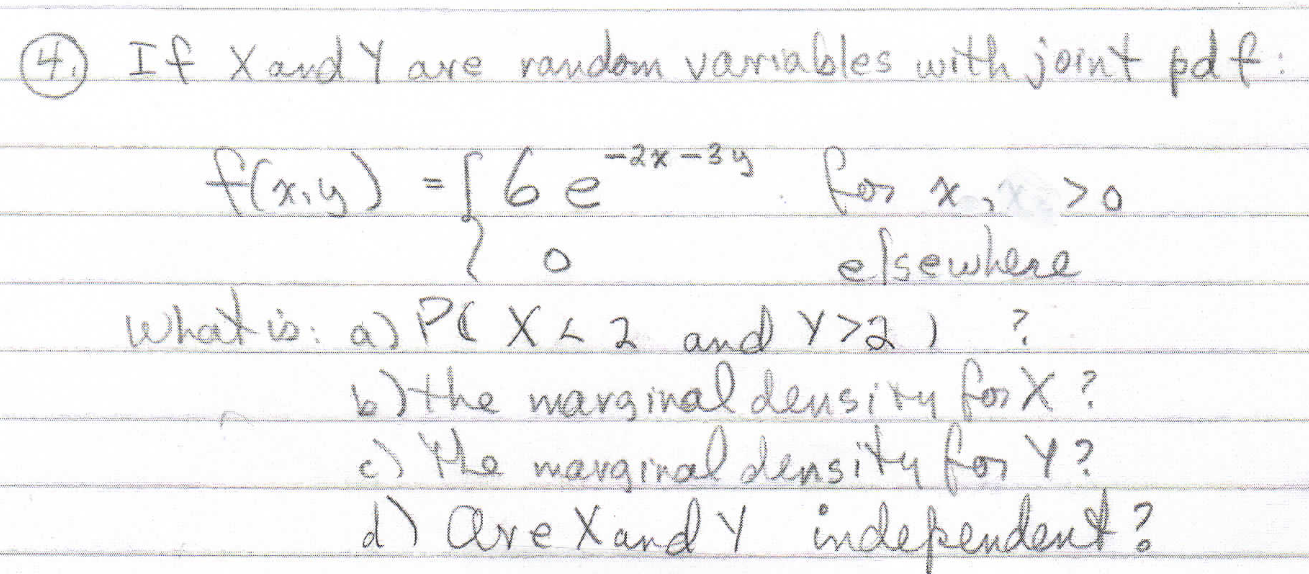 4. If X and Y are random variables with joint pdf:
f(x,y) = { 6 e^{-2x-3y} for x, x > 0
0 elsewhere
What is: a) P( X < 2 and Y > 2 ) ?
b) the marginal density for X ?
c) the marginal density for Y ?
d) Are X and Y independent ?